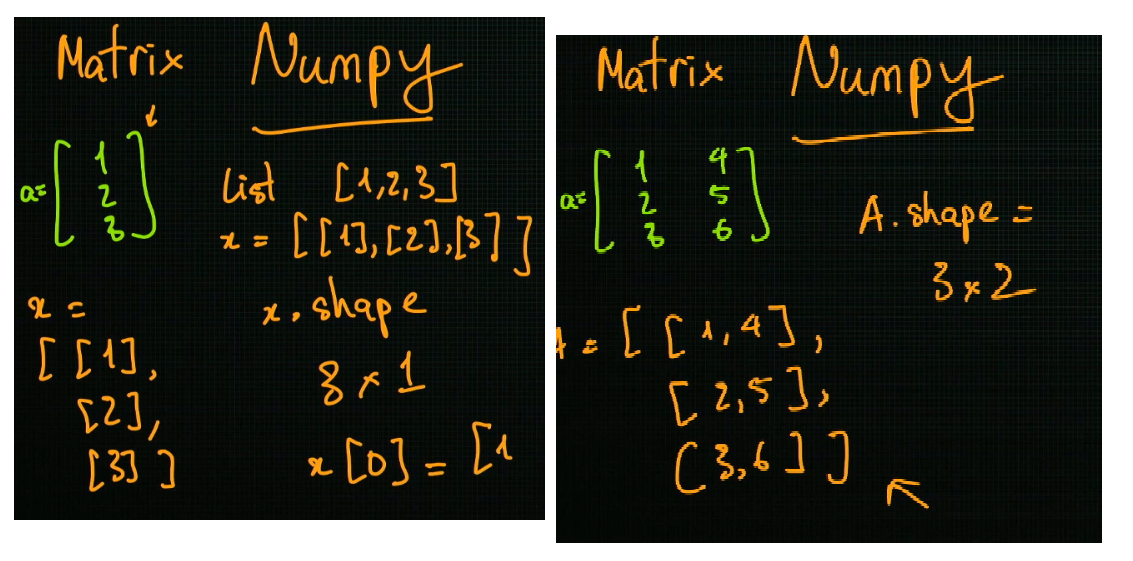 Matrix Numpy
a= [ 1
2
3 ]
List [1,2,3]
x = [[1],[2],[3]]
x =
[[1],
[2],
[3]]
x.shape
3 x 1
x[0] = [1
Matrix Numpy
a= [ 1 4
2 5
3 6 ]
A.shape =
3 x 2
A = [[1,4],
[2,5],
[3,6]]